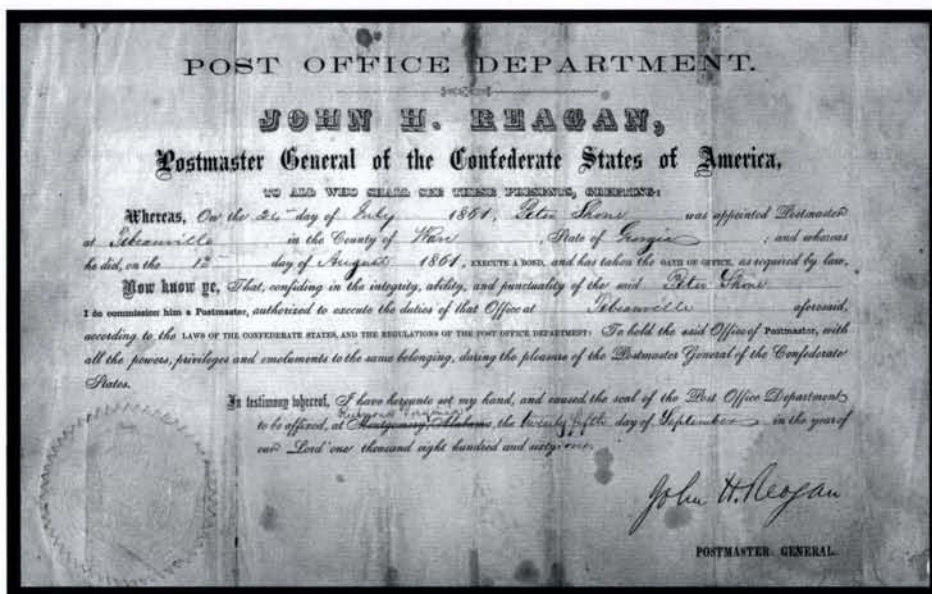 POST OFFICE DEPARTMENT.
JOHN H. REAGAN,
Postmaster General of the Confederate States of America,
TO ALL WHO SHALL SEE THESE PRESENTS, GREETING:
Whereas, On the 24 day of July 1861, Peter Shone was appointed Postmaster
at Tebeauville in the County of Ware, State of Georgia; and whereas
he did, on the 12 day of August 1861, EXECUTE A BOND, and has taken the OATH OF OFFICE, as required by law,
Now know ye, That, confiding in the integrity, ability, and punctuality of the said Peter Shone
I do commission him a Postmaster, authorized to execute the duties of that Office at Tebeauville aforesaid,
according to the LAWS OF THE CONFEDERATE STATES, AND THE REGULATIONS OF THE POST OFFICE DEPARTMENT: To hold the said Office of Postmaster, with
all the powers, privileges and emoluments to the same belonging, during the pleasure of the Postmaster General of the Confederate
States.
In testimony whereof, I have hereunto set my hand, and caused the seal of the Post Office Department
Richmond Virginia
to be affixed, at Montgomery, Alabama, the twenty fifth day of September in the year of
our Lord one thousand eight hundred and sixty one.
John H. Reagan
POSTMASTER GENERAL.